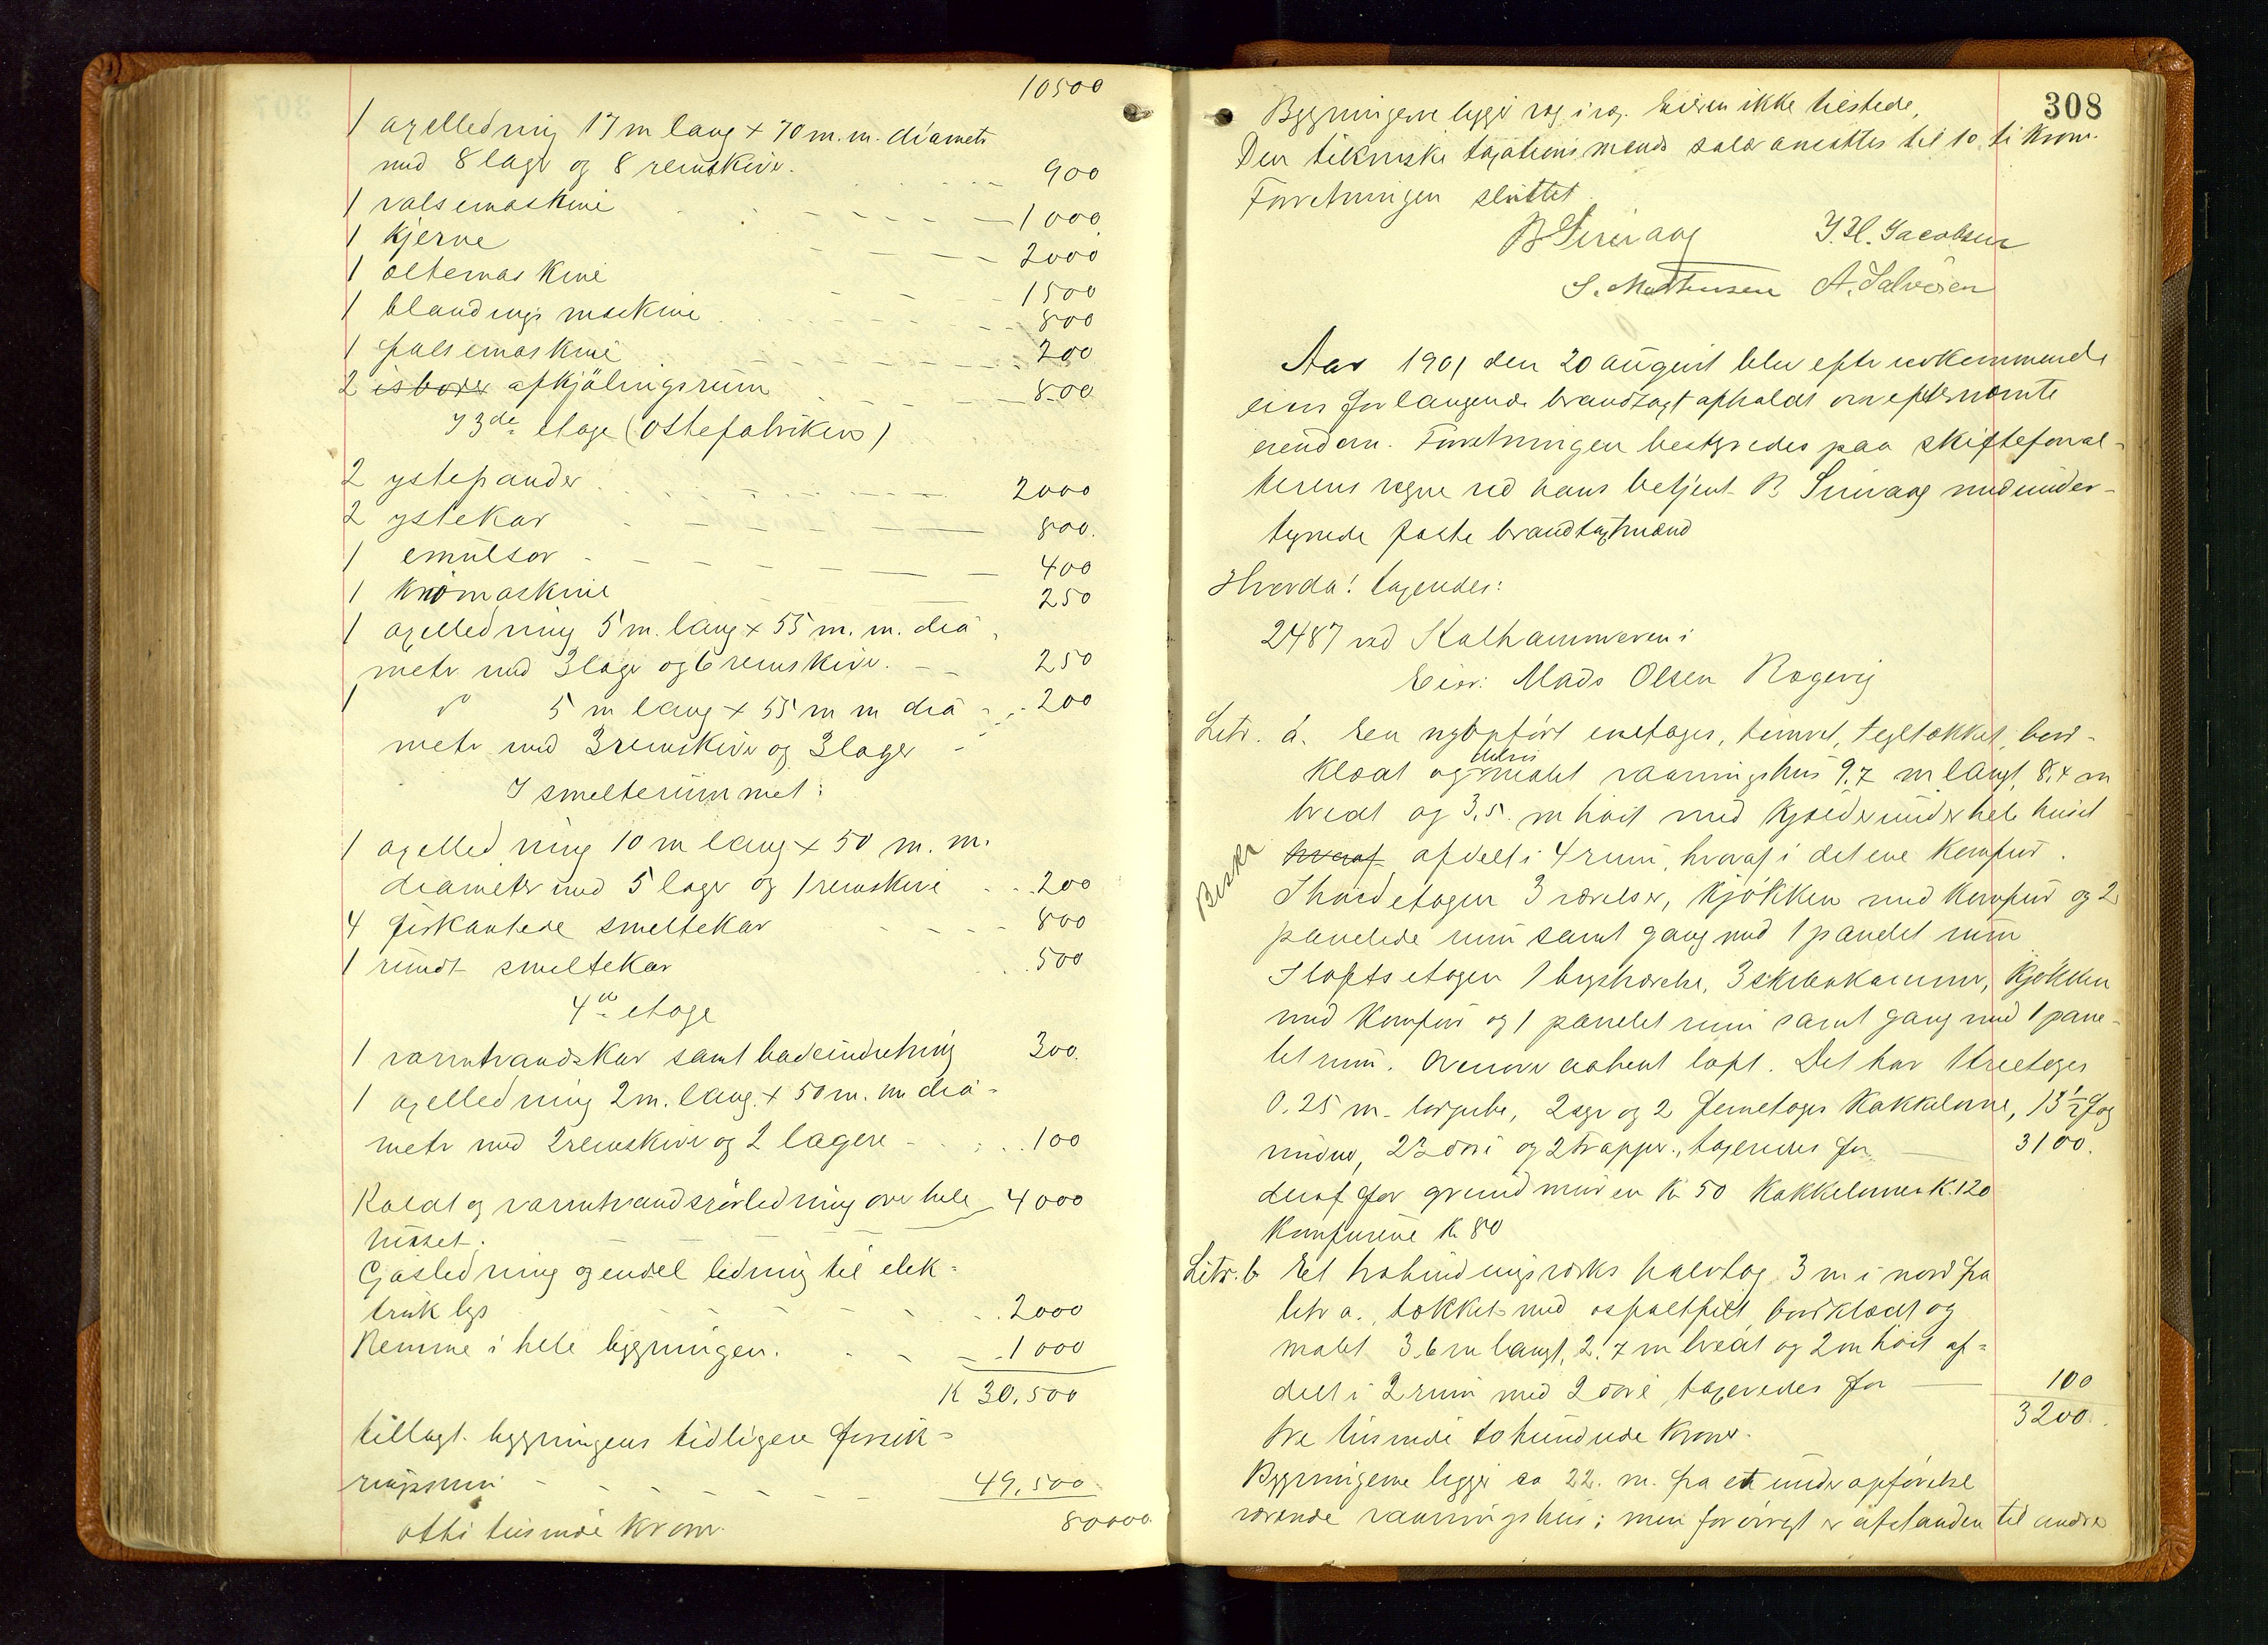 10500
1 axelledning 17 m lang + 70 m.m. diameter
med 8 lager og 8 remskiver. 900
1 valsemaskine 1000
1 kjerne 2000
1 æltemaskine 1500
1 blandingsmaskine 800
1 falsemaskine 200
2 isboder afkjölingsrum 800
I 3de etage (Ostefabriken)
2 ystepander 2000
2 ystekar 800.
1 emulsor 400
1 knomaskine 250
1 axelledning 5 m. lang + 55 m.m. dia-
meter med 3 lager og 6 remskiver. 250
1 " 5 m lang + 55 m m dia- 200
meter med 3 remskiver og 3 lager
I smelterummet:
1 axelledning 10 m lang + 50 m.m.
diameter med 5 lager og 1 remskive 200
4 firkantede smeltekar 800
1 rundt smeltekar 500
4de etage
1 varmtvandskar samt badeindretning 300.
1 axelledning 2 m. lang + 50 m.m dia-
meter med 2 remskiver og 2 lagere 100
Koldt og varmtvandsrörledning over hele 4000
huset.
Gasledning og endel ledning til elek-
trisk lys 2000
Remme i hele bygningen. 1000
K 30,500
tillagt bygningens tidligere forsik-
ringssum 49,500
otti tusinde kroner. 80000
308
Bygningerne ligger væg i væg. Eieren ikke tilstede.
Den tekniske taxationsmænds salær ansattes til 10, ti kroner.
Forretningen sluttet.
J.H. Jacobsen
S. Mathiesen A. Salvesen
Aar 1901 den 20 august blev efter vedkommende
eiers forlangende brandtaxt afholdt over efternævnte
eiendom. Forretningen bestyredes paa skifteforval-
terens vegne ved hans betjent B. med under-
tegnede faste brandtaxtmænd
Hvorda! taxeredes:
2487 ved Kalhammerveien i
Eier: Mads Olsen Rogevig
Litr. a. En nyopfört enetages, tömret, tegltækket, bord-
klædt og delvis malet vaaningshus 9,7 m langt, 8,4 m
bredt og 3,5 m höit med kjælder under hele huset
hvoraf afdelt i 4 rum, hvoraf i det ene komfur.
I hovedetagen 3 værelser, kjökken med komfur og 2
panelede rum samt gang med 1 panelet rum
I loftsetagen 1 kvistværelse, 3 skraakammer, kjökken
med komfur og 1 panelet rum samt gang med 1 pane-
let rum. Ovenover aabent loft. Det har 1 treetages
0.25 m. 2 og 2 femetages kakkelovne, 13½ fag
vinduer, 22 döre og 2 trapper., taxeredes for 3100.
deraf for grundmuren K 50 Kakkelovner K. 120
Komfurene K 80
Litr. b Et halvtag 3 m i nord fra
litr a., tækket med asfaltfilt, bordklædt og
malet 3,6 m langt, 2,7 m bredt og 2 m höit af-
delt i 2 rum med 2 döre taxeredes for 100
3200.
tre tusinde to hundrede kroner.
Bygningerne ligger ca 22. m. fra et under opförelse
værende vaaningshus; men forövrigt er afstanden til andre